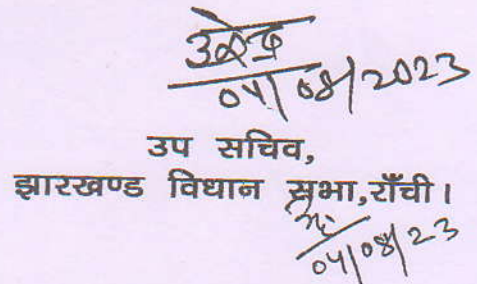 04/08/2023
उप सचिव,
झारखण्ड विधान सभा,राँची।
04/08/23